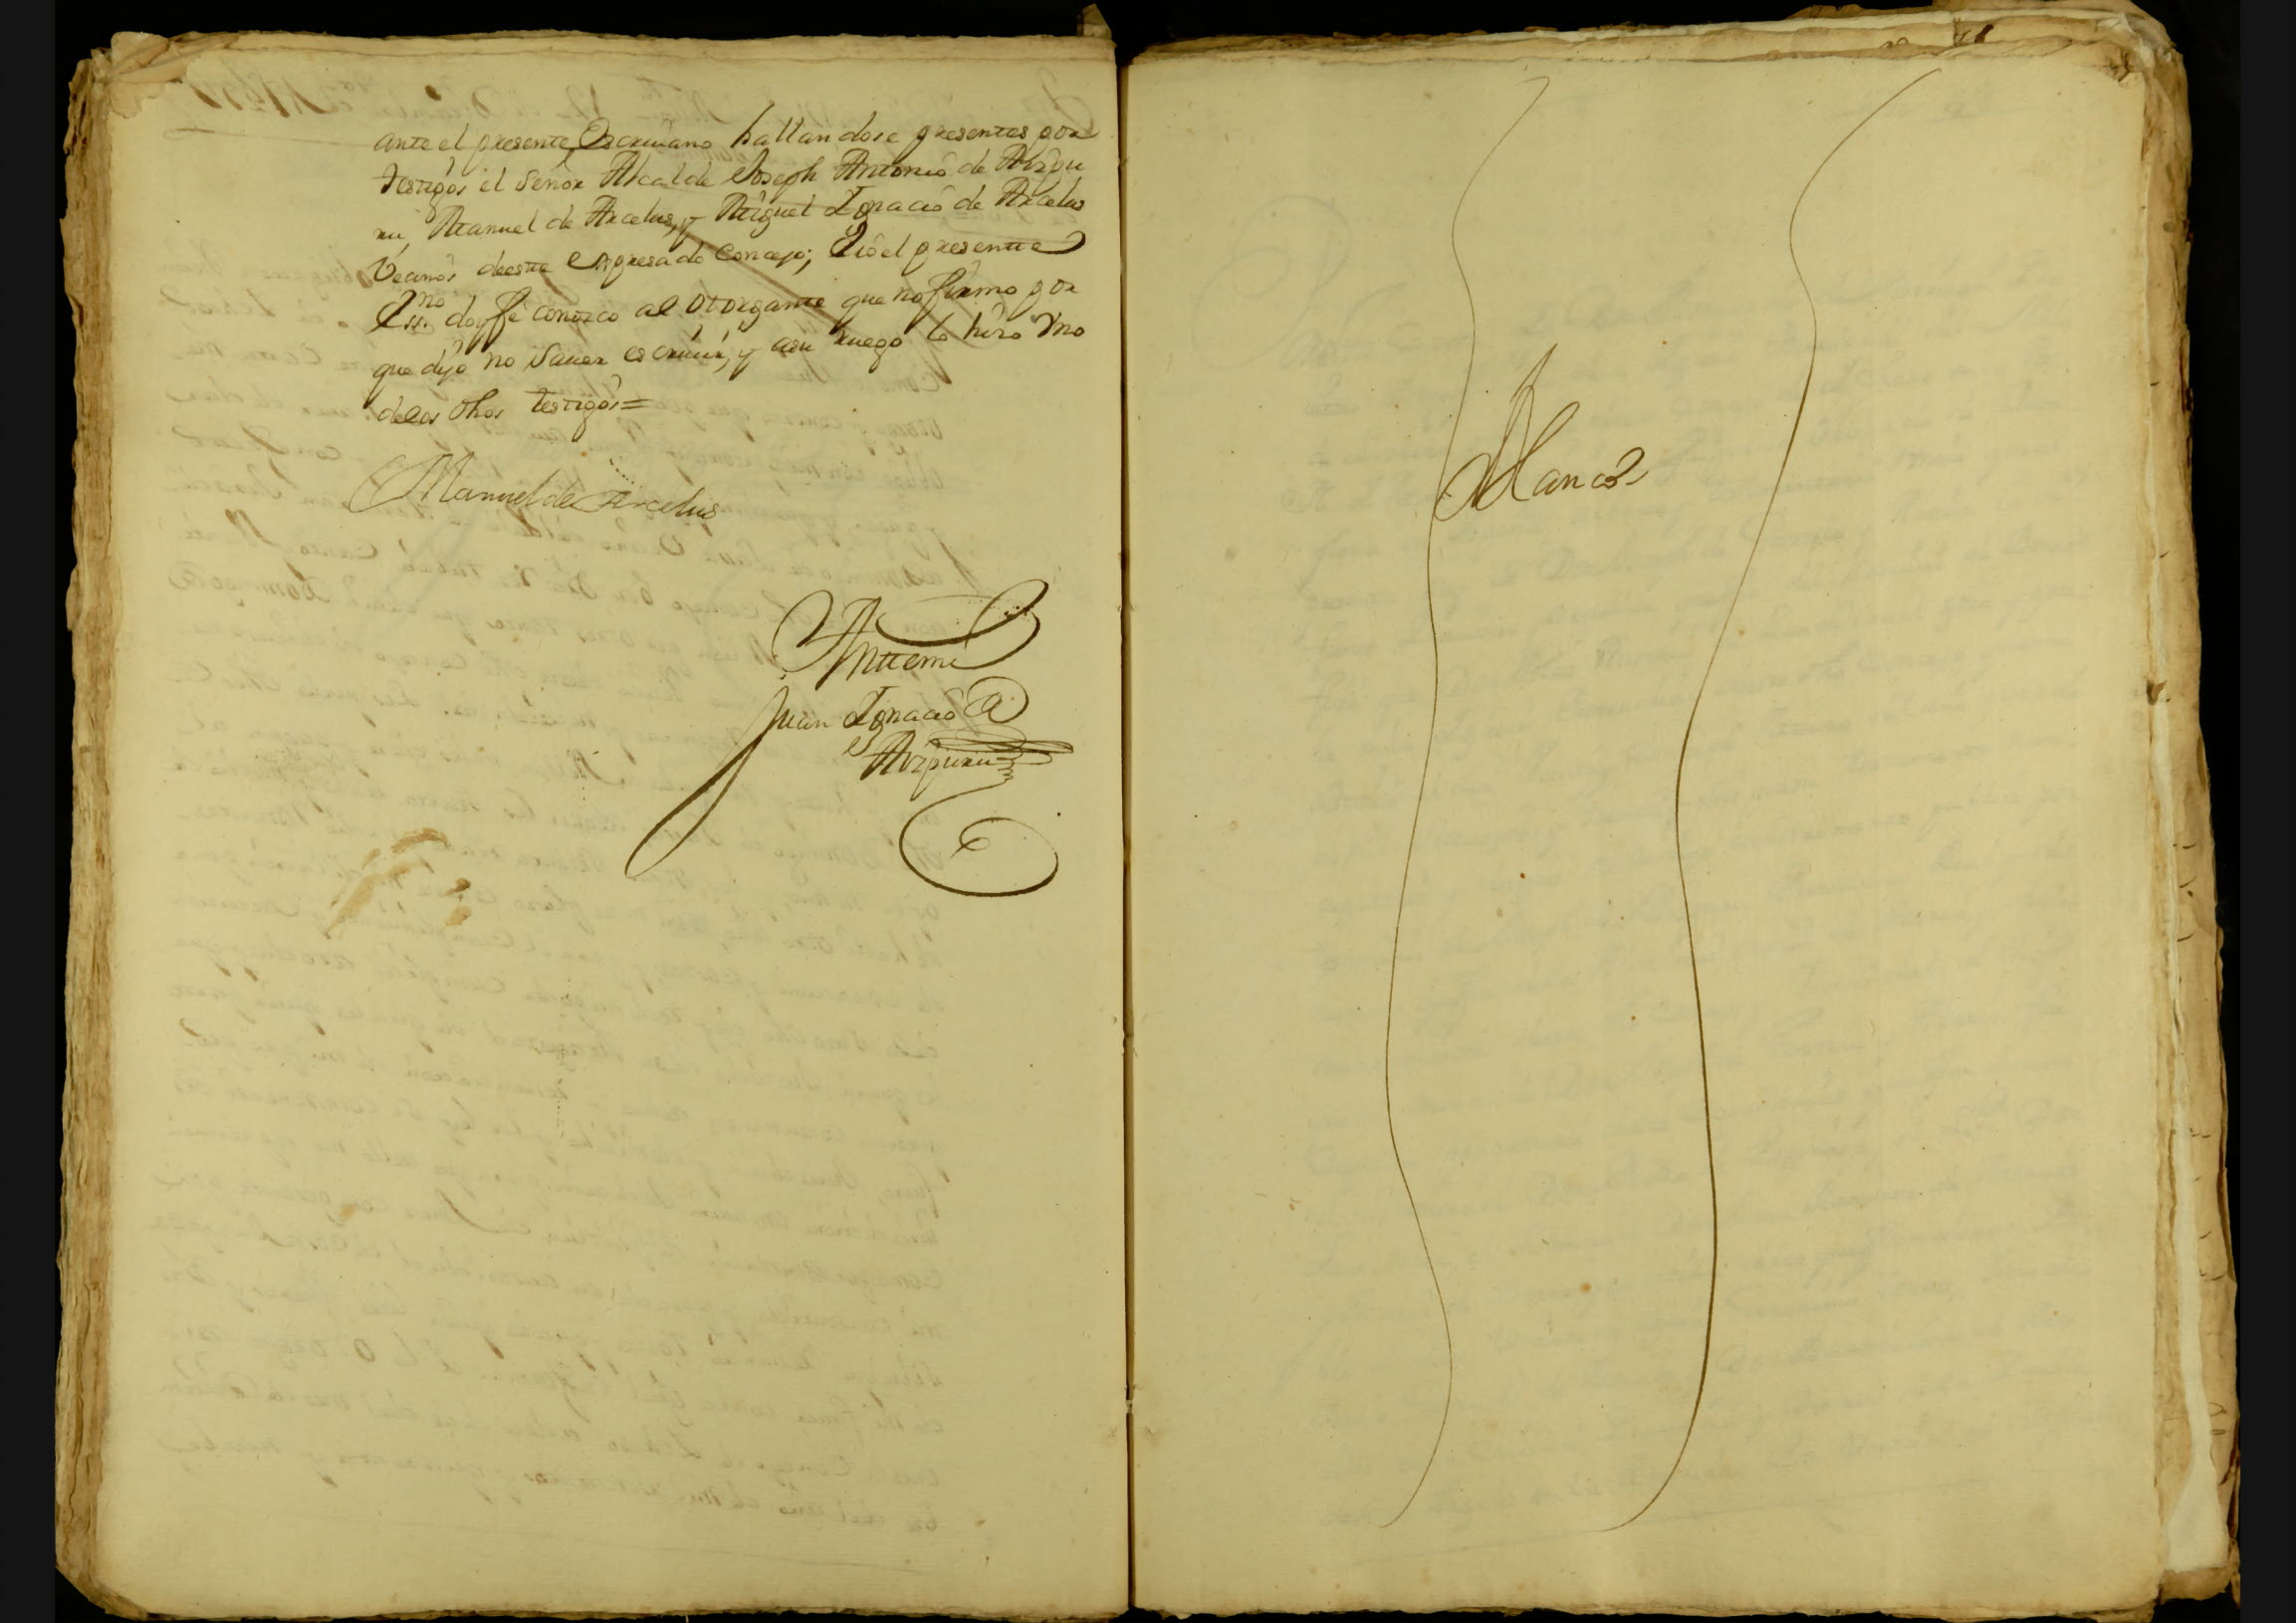 ante el presente Escrivano hallandose presentes por
testigos el Señor Alcalde Joseph Antonio de Aizpu
ru, Manuel de Arcelus, y Miguel Ignacio de Arcelus
Vecinos deeste expresado Concejo; Eio el presente
Essno. doy fe conozco al Otorgante que no firmo por
que dijo no Saver escriuir, y asu ruego lo hizo Vno
delos dhos testigos=
Manuel de Arcelus
Anttemi
Juan Ignacio de
Aizpuru
Blanco